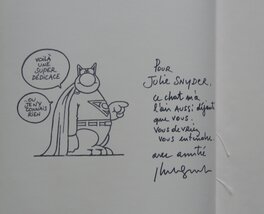 VOILÀ
UNE
SUPER
DÉDICACE
OU
J'EN Y
CONNAIS
RIEN
POUR
JULIE SNYDER,
ce chat m'a
l'air aussi déjanté
que vous.
Vous devriez
vous entendre
avec amitié